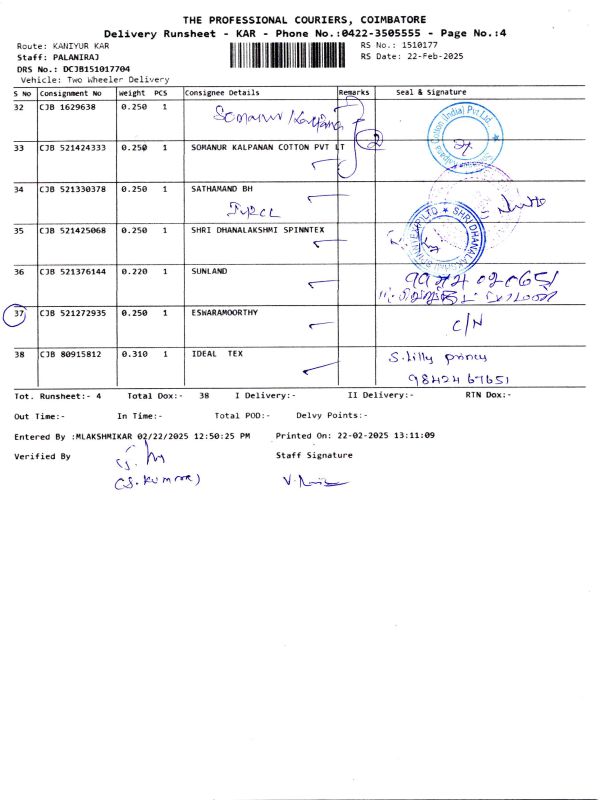 THE PROFESSIONAL COURIERS, COIMBATORE
Delivery Runsheet - KAR - Phone No.:0422-3505555 - Page No.:4
Route: KANIYUR KAR
RS No.: 1510177
Staff: PALANIRAJ
RS Date: 22-Feb-2025
DRS No.: DCJB151017704
Vehicle: Two Wheeler Delivery
S No Consignment No Weight PCS Consignee Details Remarks Seal & Signature
32 CJB 1629638 0.250 1 Somanur/Kalpana
2
33 CJB 521424333 0.250 1 SOMANUR KALPANAN COTTON PVT LT
Cotton (India) Pvt Ltd
34 CJB 521330378 0.250 1 SATHAMAND BH
35 CJB 521425068 0.250 1 SHRI DHANALAKSHMI SPINNTEX
SHRI DHANALAKSHMI
36 CJB 521376144 0.220 1 SUNLAND
37 CJB 521272935 0.250 1 ESWARAMOORTHY C/N
38 CJB 80915812 0.310 1 IDEAL TEX S. Lilly princy
9842467651
Tot. Runsheet:- 4 Total Dox:- 38 I Delivery:- II Delivery:- RTN Dox:-
Out Time:- In Time:- Total POD:- Delvy Points:-
Entered By :MLAKSHMIKAR 02/22/2025 12:50:25 PM Printed On: 22-02-2025 13:11:09
Verified By Staff Signature
(S. Kumar)